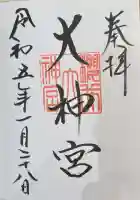 奉拝
大神宮
令和五年一月二十八日